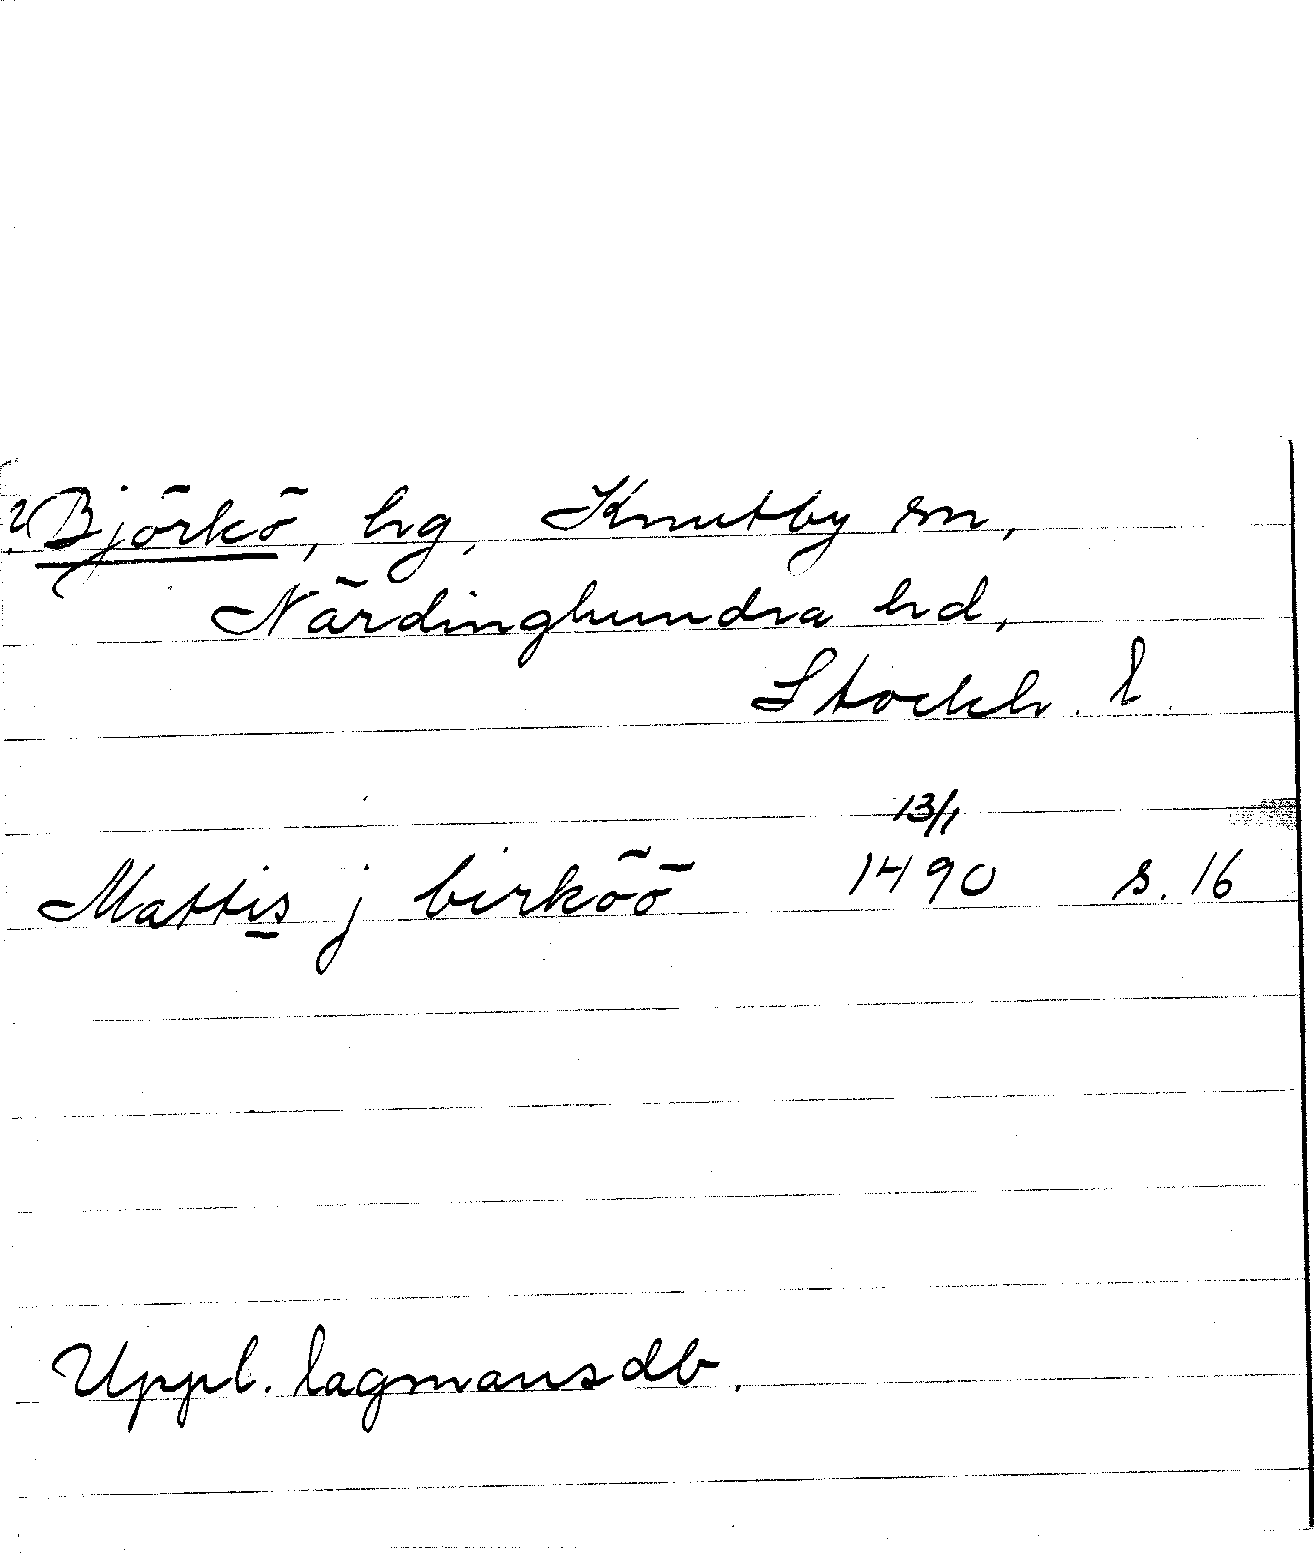 ? Björkö, hg, Knutby sn,
Närdinghundra hd,
Stockh. l.
13/1
Mattis j birköö 1490 s. 16
Uppl. lagmansdb.